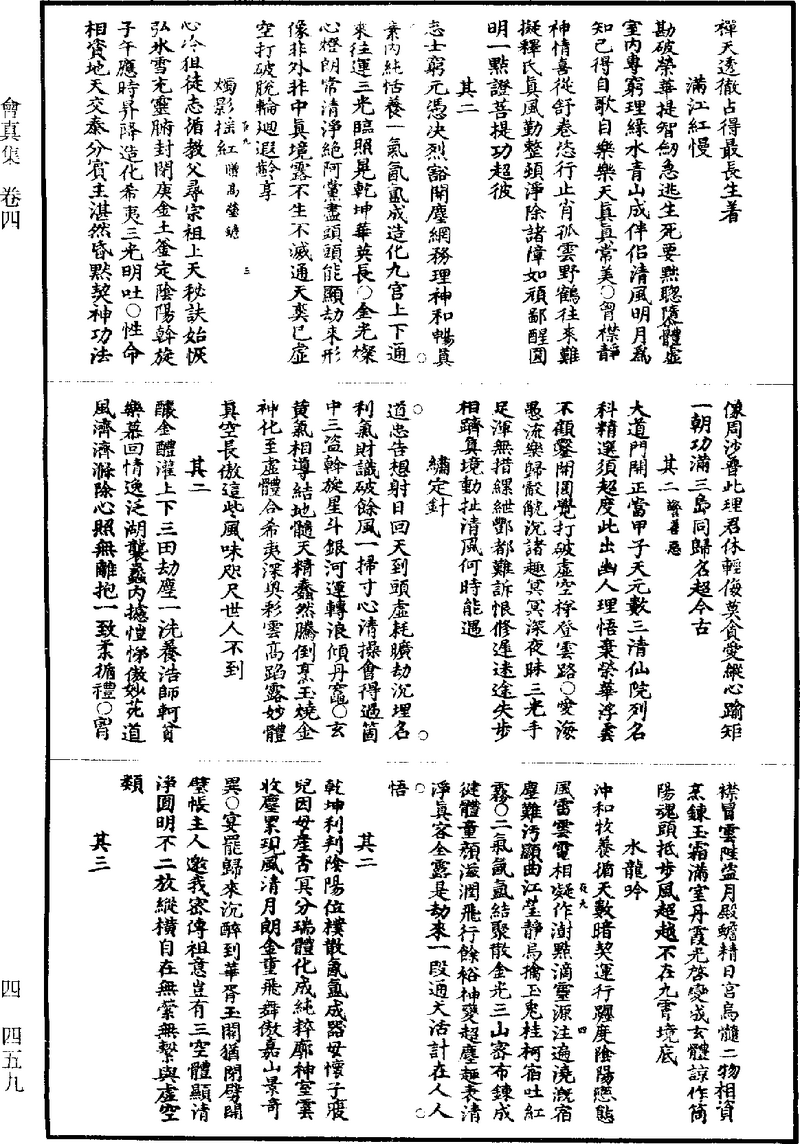 會真集 卷四
禪天透徹占得最長生著
滿江紅慢
勘破榮華提智劒急逃生死要黙聰隳體虛
室內專窮理綠水青山成伴侣清風明月爲
知己得自歌自樂樂天真真常美○曾襟靜
神情喜從舒卷恣行止肖孤雲野鶴往來難
擬釋氏真風勤整頓淨除諸障如頑鄙醒圓
明一點證菩提功超彼
其二
志士窮元憑决烈豁開塵網務理神和暢真
素內純恬養一氣氤氳成造化九宮上下通
來往運三光臨照晃乾坤華英長○金光燦
心燈朗常清淨絶阿黨盡頭頭能顯劫來形
像非外非中真境露不生不滅通天奕已虛
空打破脫輪廻遐齡享
燭影揺紅 贈高瑩蟾
心冷狙徒志循教父尋宗祖上天秘訣始恢
弘氷雪充靈腑封閉庚金土釜定陰陽斡旋
子午應時昇降造化希夷三光明吐○性命
相資地天交泰分賓主湛然昏黙契神功法
像周沙響此理君休輕侮莫貪愛縱心踰矩
一朝功滿三島同歸名超今古
其二 警善惡
大道門開正當甲子天元數三清仙院列名
科精選須超度此出幽人理悟棄榮華浮雲
不顧鑿開圓覺打破虛空梯登雲路○愛海
愚流樂歸殽酰沉諸趣冥冥深夜昧三光手
足渾無措縲紲酆都難訴恨修遲迷途失步
相躋真境動扯清風何時能遇
繡定針
道忠告想射日回天到頭虛耗曠劫沉理名
利氣財識破餘風一掃寸心清操會得過箇
中三盗斡旋星斗銀河運轉浪傾丹竈○玄
黄氣相導結地髓天精蠢然騰倒烹玉燒金
神化至虛體合希夷深奥彩雲高蹈露妙體
真空長傲這些風味咫尺世人不到
其二
釀金醴灌上下三田劫塵一洗養浩師軻貧
樂慕回情逸泛湖襲蠡內摅愷悌傲妙苑道
風濟濟滌除心照無離抱一致柔循禮○霄
襟冒雲陛盗月殿蟾精日宮烏髓二物相資
烹鍊玉霜滿室丹霞光啓變成玄體諒作箇
陽魂頭抵步風超越不在九霄境底
水龍吟
沖和牧養循天數暗契運行躔度陰陽慝態
風雷雲電相凝作澍點滴靈源注遍澆溉宿
塵難污顯曲江瑩靜烏擒玉兔桂柯宿吐紅
霧○二氣氤氳結聚散金光三山密布鍊成
健體童顔滋潤飛行餘裕神變超塵趣表清
淨真客全露是劫來一段通天活計在人人
悟
其二
乾坤利判陰陽位樸散氤氳成器母懷子腹
兒因母産杳冥分瑞體化成純粹廓神室雲
收塵累現風清月朗金童飛舞傲嘉山景奇
異○宴罷歸來沉醉到華胥玉關猶閉劈開
壁帳主人邀我密傳祖意豈有三空體顯清
淨圓明不二放縱橫自在無縈無繫與虛空
類
其三
四 四五九